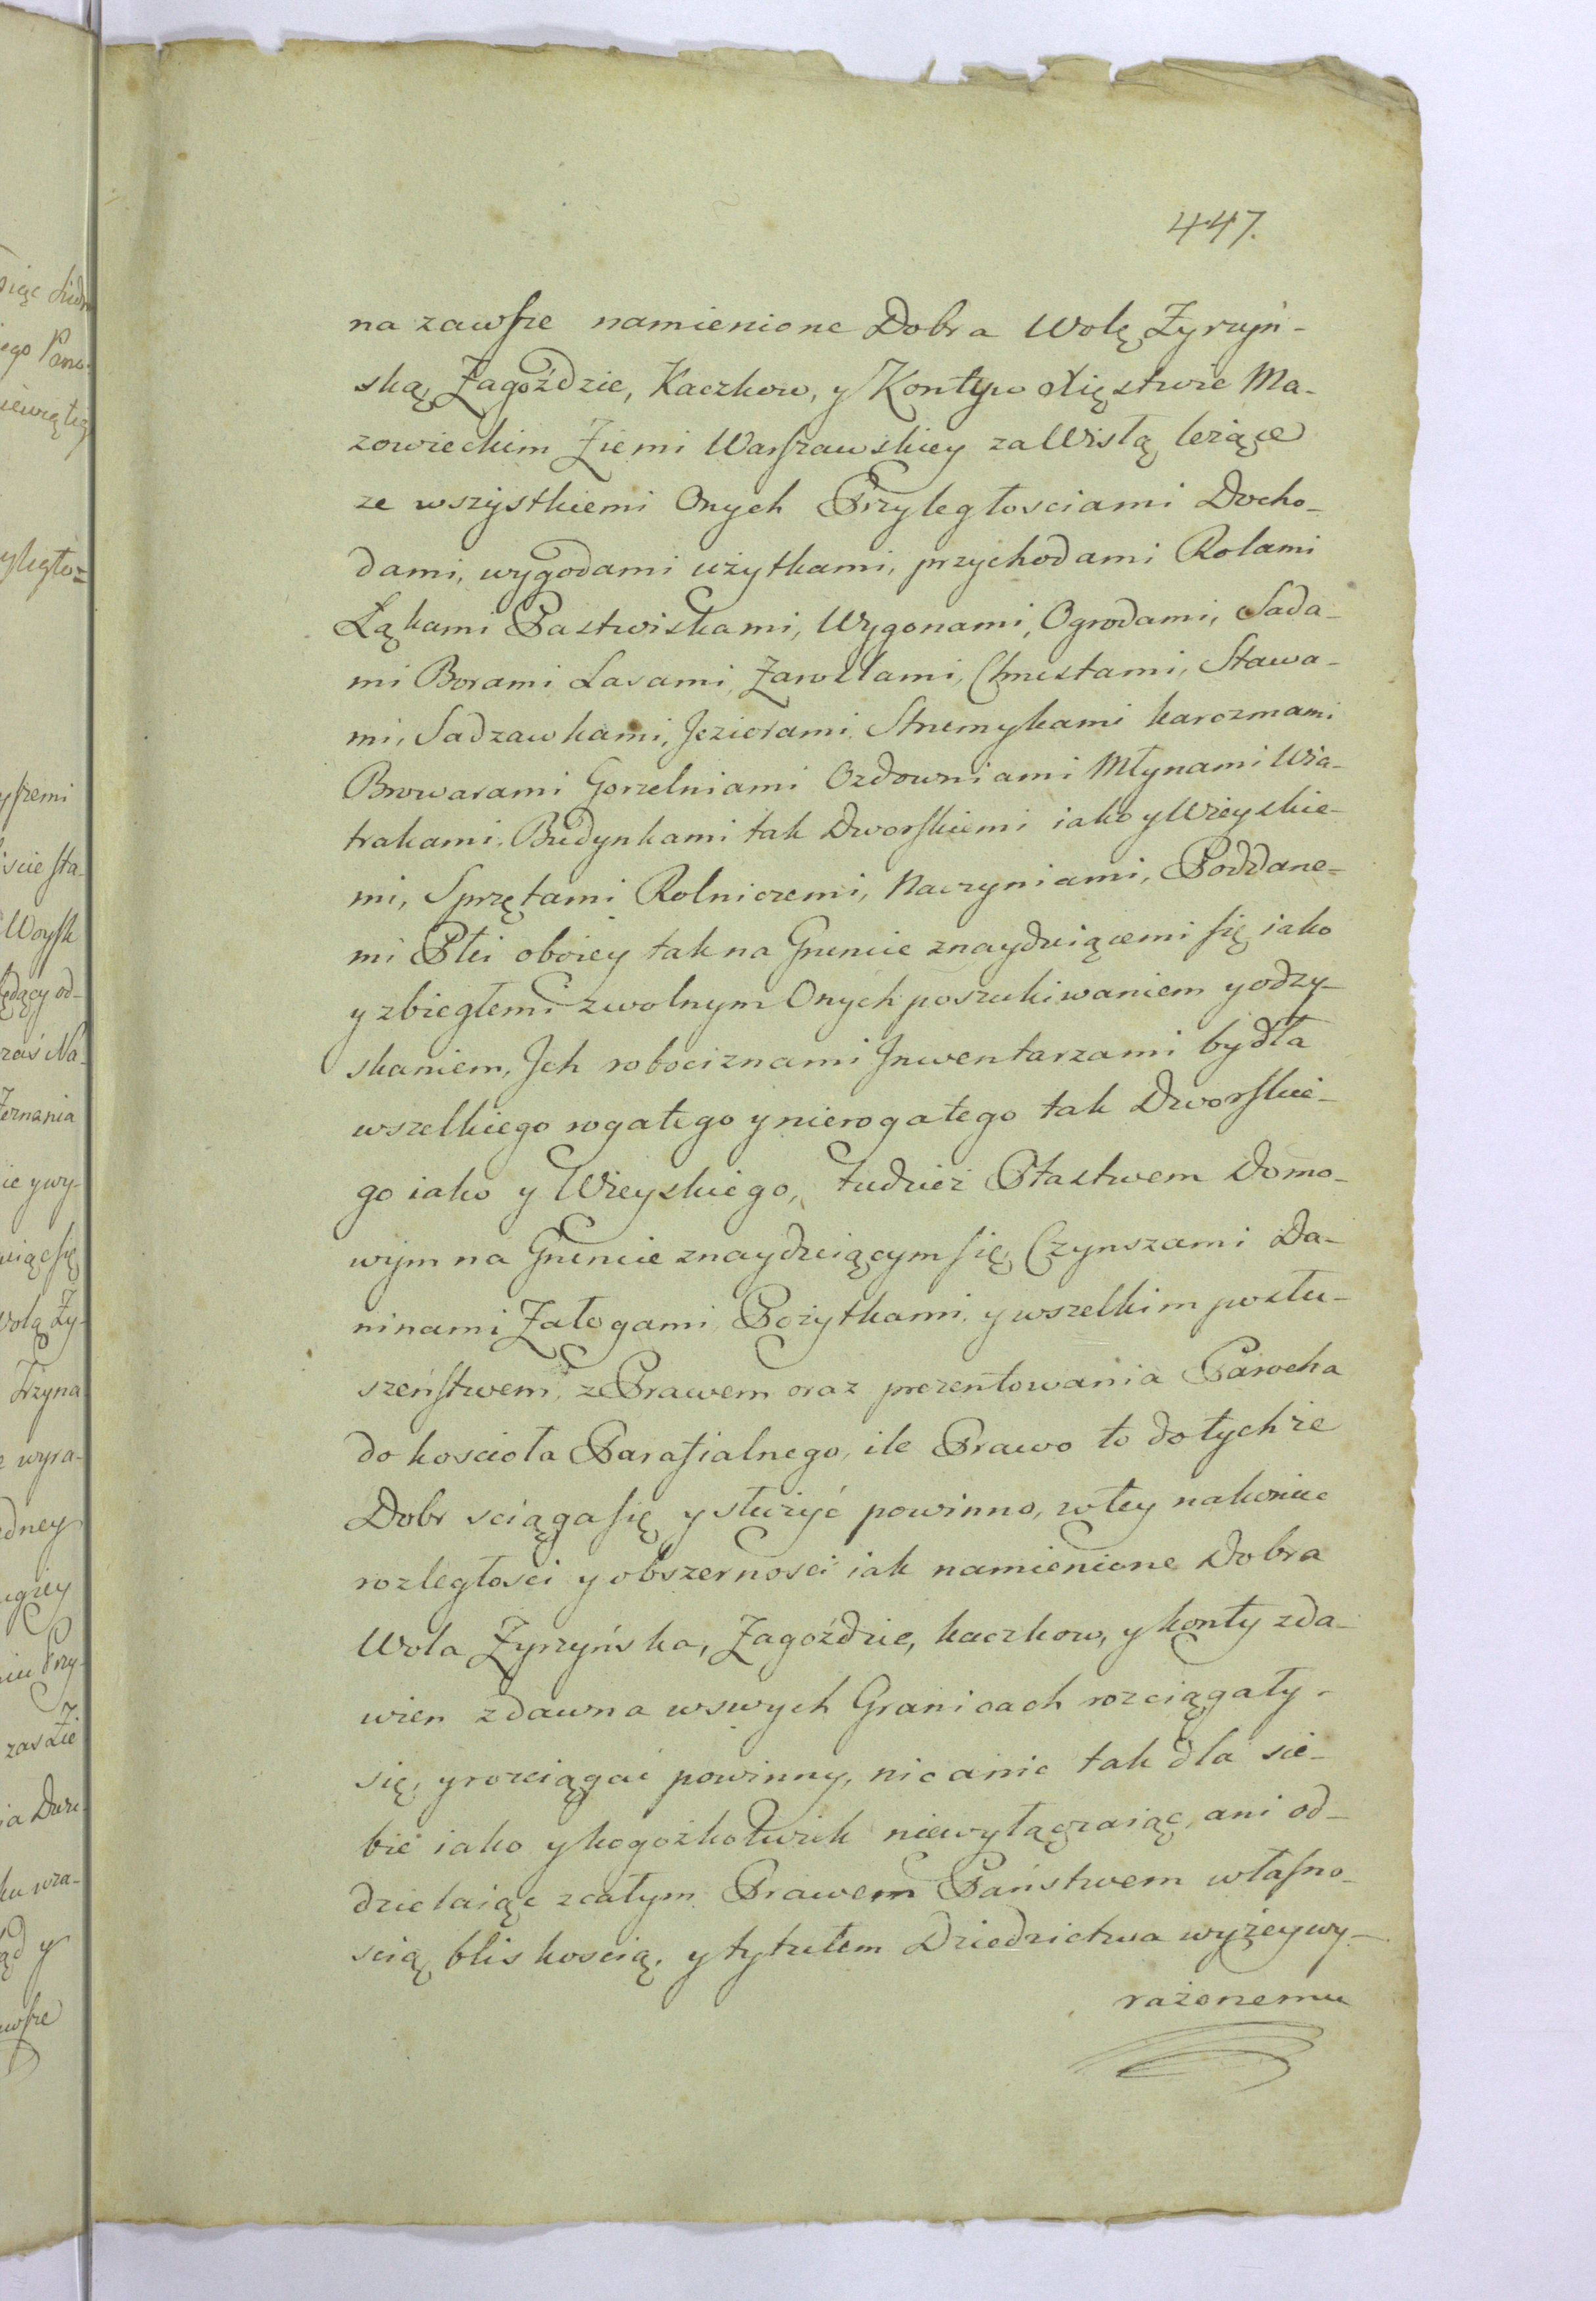 447.
na zawsze namienione Dobra Wolę Zyrzyń-
ską Zagoździe, Kaczkow, y Konty w Xięstwie Ma-
zowieckim Ziemi Warszawskiey za Wisłą leżące
ze wszystkiemi Onych Przyległosciami Docho-
dami, wygodami użytkami, przychodami Rolami
Łąkami Pastwiskami, Wygonami, Ogrodami, Sada-
mi Borami Lasami, Zaroslami, Chrustami, Stawa-
mi, Sadzawkami, Jeziorami, Strumykami karczmami
Browarami Gorzelniami Ozdowniami Młynami Wia-
trakami, Budynkami tak Dworskiemi iako y Wieyskie-
mi, Sprzętami Rolniczemi, Naczyniami, Poddane-
mi Płci oboiey tak na Gruncie znayduiącemi się iako
y zbiegłemi z wolnym Onych poszukiwaniem y odzy-
skaniem, Jch robociznami Jnwentarzami bydła
wszelkiego rogatego y nierogatego tak Dworskie-
go iako y Wieyskiego, tudzież Ptastwem Domo-
wym na Gruncie znayduiącym się, Czynszami Da-
ninami Załogami, Pożytkami, y wszelkim posłu-
szeństwem, z Prawem oraz prezentowania Parocha
do koscioła Parafialnego, ile Prawo to do tychże
Dobr sciąga się y służyć powinno, w tey nakoniec
rozległosci y obszernosci iak namienione Dobra
Wola Zyrzyńska, Zagoździe, kaczkow, y konty zda-
wien zdawna w swych Granicach rozciągały
się, y rozciągać powinny, nic a nic tak dla sie-
bie iako y kogożkolwiek niewyłączaiąc, ani od-
dzielaiąc z całym Prawem Państwem własno-
scią, bliskoscią, y tytułem Dziedzictwa wyżey wy-
rażonemu